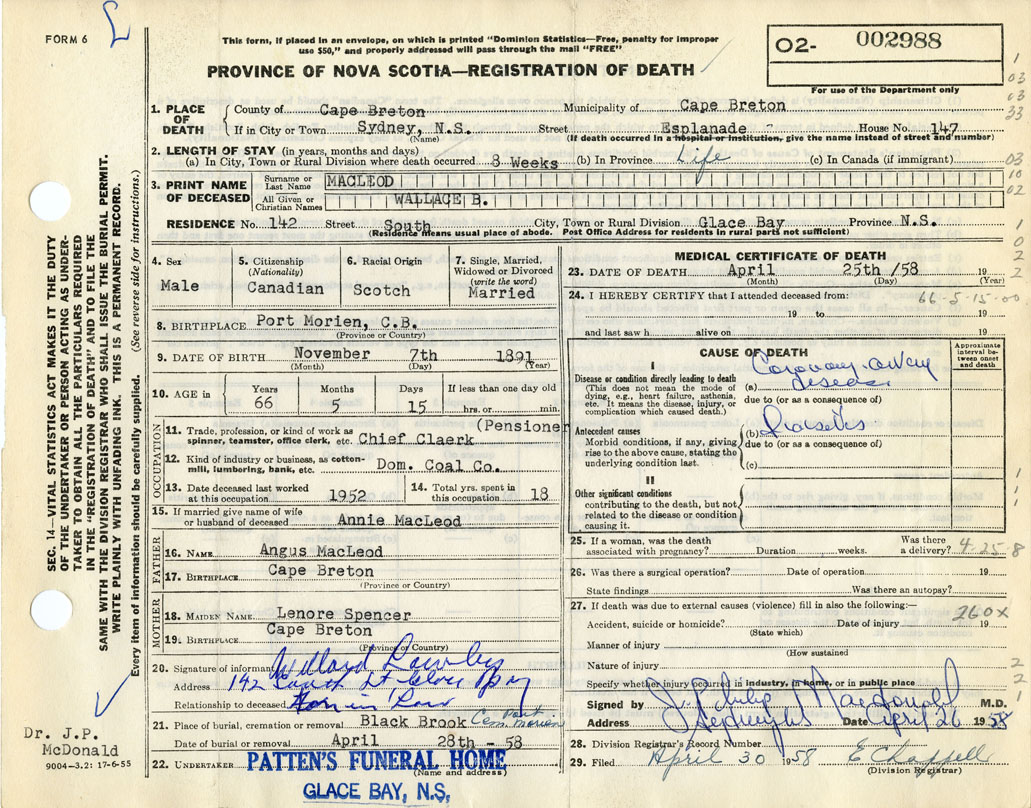 FORM 6
This form, if placed in an envelope, on which is printed "Dominion Statistics—Free, penalty for improper
use $50," and properly addressed will pass through the mail "FREE"
PROVINCE OF NOVA SCOTIA—REGISTRATION OF DEATH
02- 002988
For use of the Department only
1. PLACE OF DEATH
County of Cape Breton Municipality of Cape Breton
If in City or Town Sydney, N.S. Street Esplanade House No. 147
(Name) (If death occurred in a hospital or institution, give the name instead of street and number)
2. LENGTH OF STAY (in years, months and days)
(a) In City, Town or Rural Division where death occurred 8 Weeks (b) In Province Life (c) In Canada (if immigrant)
3. PRINT NAME OF DECEASED
Surname or Last Name MACLEOD
All Given or Christian Names WALLACE B.
RESIDENCE No. 142 Street South City, Town or Rural Division Glace Bay Province N.S.
(Residence means usual place of abode. Post Office Address for residents in rural parts not sufficient)
4. Sex
Male
5. Citizenship
(Nationality)
Canadian
6. Racial Origin
Scotch
7. Single, Married,
Widowed or Divorced
(write the word)
Married
8. BIRTHPLACE Port Morien, C.B.
(Province or Country)
9. DATE OF BIRTH November 7th 1891
(Month) (Day) (Year)
10. AGE in
Years Months Days If less than one day old
66 5 15 hrs. or min.
OCCUPATION
11. Trade, profession, or kind of work as
spinner, teamster, office clerk, etc. Chief Claerk (Pensioner
12. Kind of industry or business, as cotton-
mill, lumbering, bank, etc. Dom. Coal Co.
13. Date deceased last worked
at this occupation 1952
14. Total yrs. spent in
this occupation 18
15. If married give name of wife
or husband of deceased Annie MacLeod
FATHER
16. NAME Angus MacLeod
17. BIRTHPLACE Cape Breton
(Province or Country)
MOTHER
18. MAIDEN NAME Lenore Spencer
19. BIRTHPLACE Cape Breton
(Province or Country)
20. Signature of informant Willard
Address 142 South St
Relationship to deceased in Law
21. Place of burial, cremation or removal Black Brook Cem. Port Morien
Date of burial or removal April 28th 58
22. UNDERTAKER PATTEN'S FUNERAL HOME
(Name and address)
GLACE BAY, N.S.
MEDICAL CERTIFICATE OF DEATH
23. DATE OF DEATH April 25th /58 19
(Month) (Day) (Year)
24. I HEREBY CERTIFY that I attended deceased from:
66-5-15-00
19 to 19
and last saw h alive on 19
CAUSE OF DEATH
Approximate
interval be-
tween onset
and death
I
Disease or condition directly leading to death
(This does not mean the mode of
dying, e.g., heart failure, asthenia,
etc. It means the disease, injury, or
complication which caused death.)
(a) Coronary artery
disease
due to (or as a consequence of)
Antecedent causes
Morbid conditions, if any, giving
rise to the above cause, stating the
underlying condition last.
(b)
due to (or as a consequence of)
(c)
II
Other significant conditions
contributing to the death, but not
related to the disease or condition
causing it.
25. If a woman, was the death
associated with pregnancy? Duration weeks. Was there
a delivery? 4-25-8
26. Was there a surgical operation? Date of operation 19
State findings Was there an autopsy?
27. If death was due to external causes (violence) fill in also the following:—
260X
Accident, suicide or homicide? Date of injury 19
(State which)
Manner of injury
(How sustained
Nature of injury
Specify whether injury occurred in industry, in home, or in public place
Signed by J. Philip Macdonald M.D.
Address Date April 26 1958
28. Division Registrar's Record Number
29. Filed April 30 1958 E Chappell
(Division Registrar)
SEC. 14—VITAL STATISTICS ACT MAKES IT THE DUTY
OF THE UNDERTAKER OR PERSON ACTING AS UNDER-
TAKER TO OBTAIN ALL THE PARTICULARS REQUIRED
IN THE "REGISTRATION OF DEATH" AND TO FILE THE
SAME WITH THE DIVISION REGISTRAR WHO SHALL ISSUE THE BURIAL PERMIT.
WRITE PLAINLY WITH UNFADING INK. THIS IS A PERMANENT RECORD.
Every item of information should be carefully supplied. (See reverse side for instructions.)
Dr. J.P.
McDonald
9004-3.2: 17-6-55
1
03
03
33
03
10
02
1
0
2
2
1
1
1
2
2
1